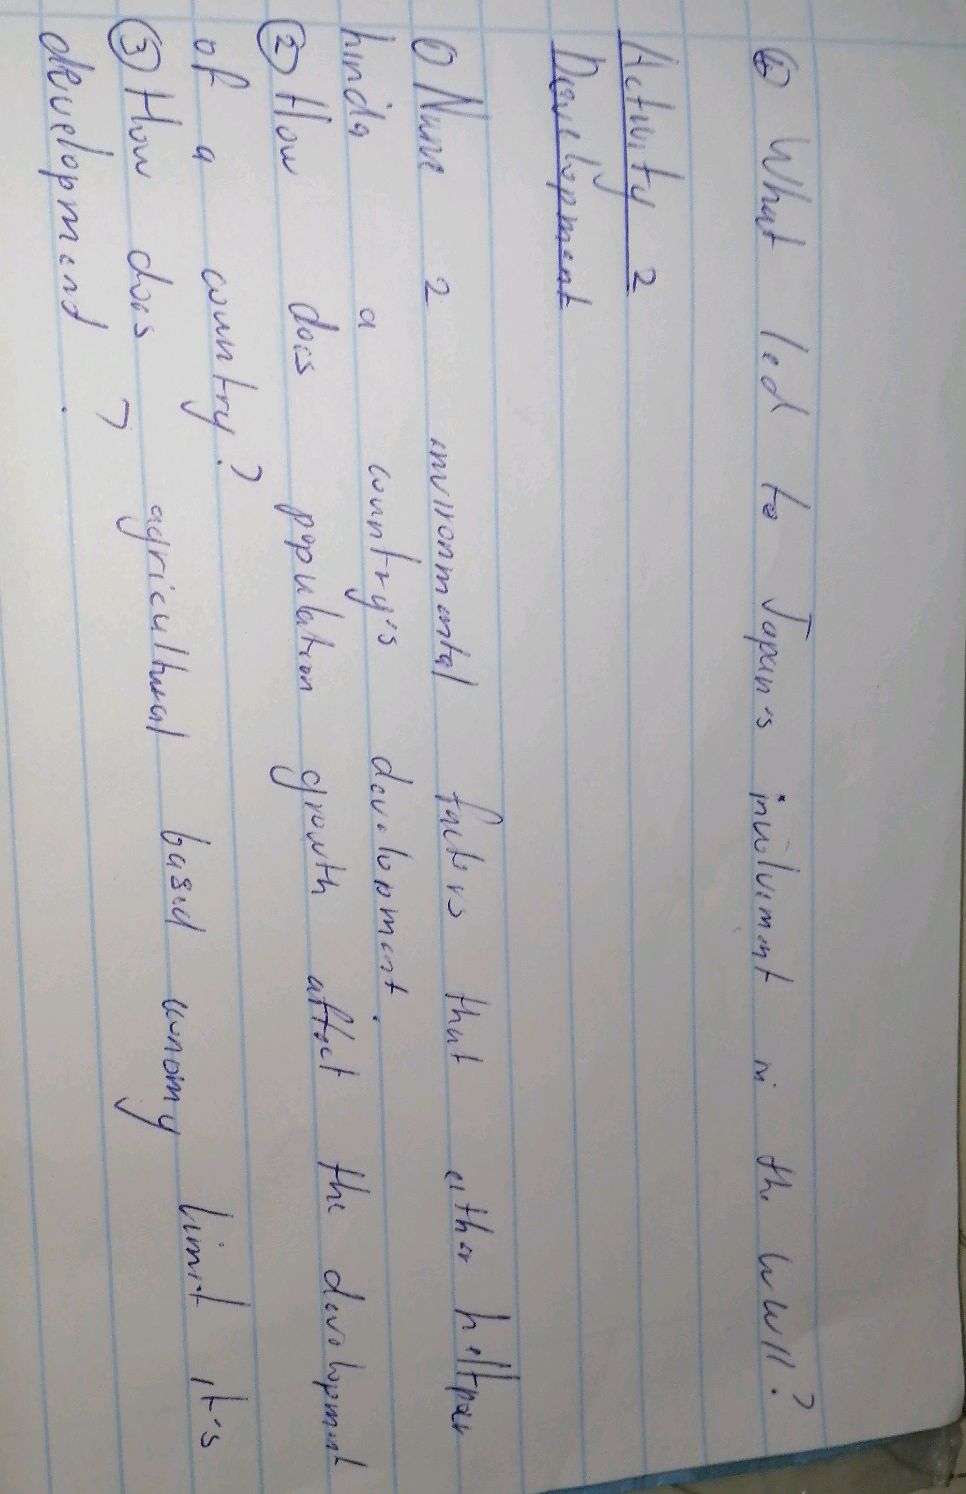 ② What led to Japan's involvement in the WWII?
Activity 2
Development
① Name 2 environmental factors that either help or
hinda a country's development.
② How does population growth affect the development
of a country?
③ How does agricultural based economy limit it's
development ?